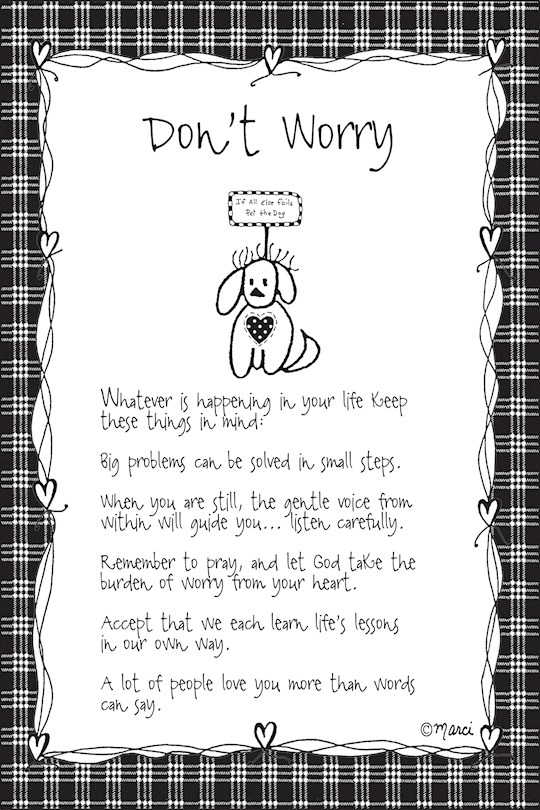 Don't Worry
If All Else Fails
Pet the Dog
Whatever is happening in your life keep
these things in mind:
Big problems can be solved in small steps.
When you are still, the gentle voice from
within will guide you... listen carefully.
Remember to pray, and let God take the
burden of worry from your heart.
Accept that we each learn life's lessons
in our own way.
A lot of people love you more than words
can say.
©Marci